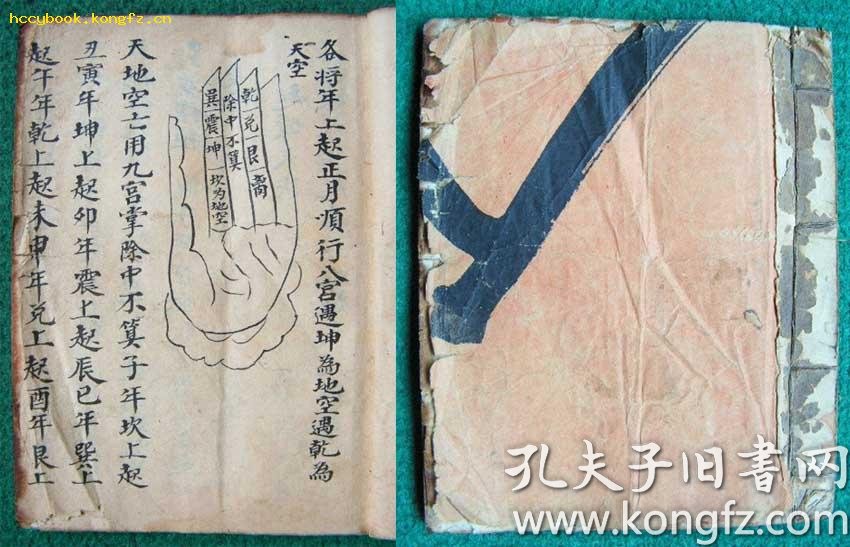 hccybook.kongfz.cn
各将年上起正月順行八宮遇坤為地空遇乾為
天空
乾兑艮离
除中不算
巽震坤坎为地空
天地空亡用九宫掌除中不算子年坎上起
丑寅年坤上起卯年震上起辰巳年巽上
起午年乾上起未申年兑上起酉年艮上
孔夫子旧書网
www.kongfz.com